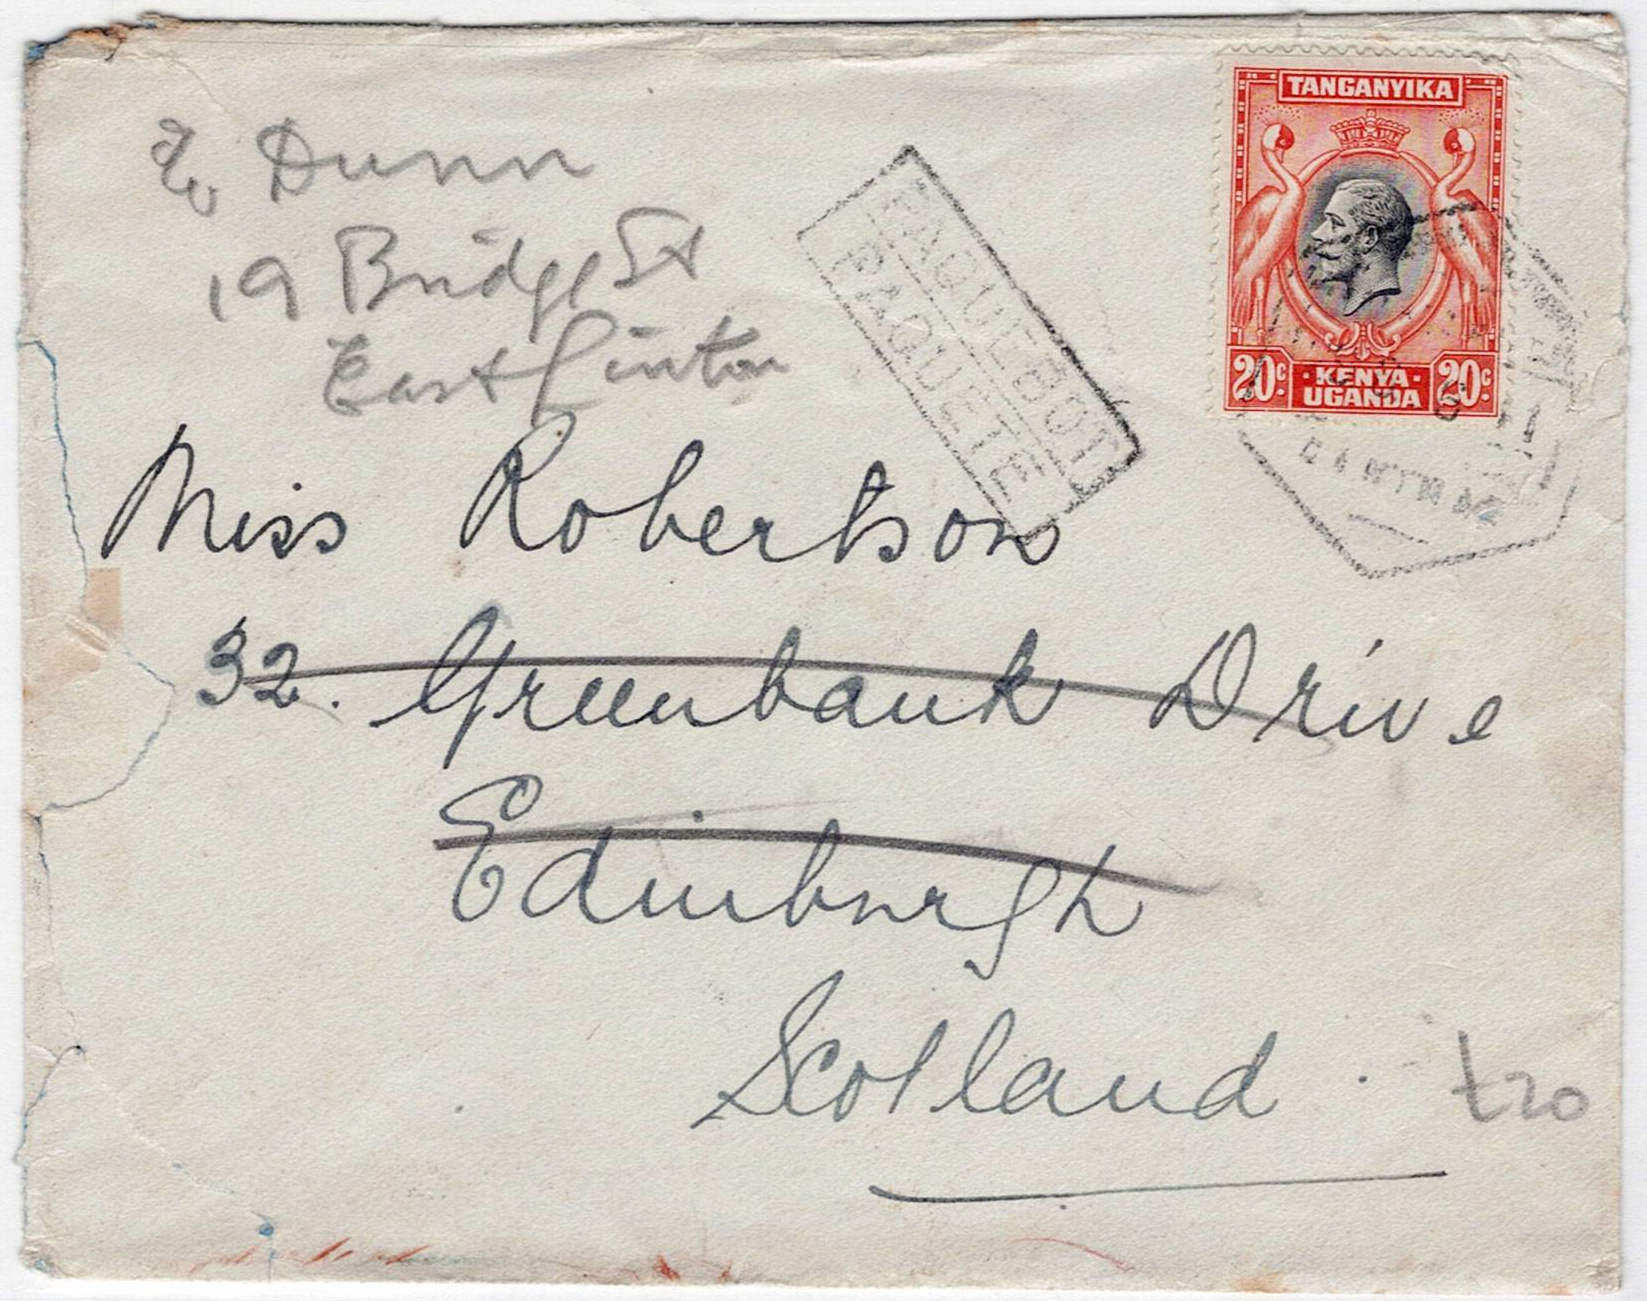 c/o Dunn
19 Bridge St
East Linton
PAQUEBOT
PAQUETE
TANGANYIKA
20c
KENYA
UGANDA
20c
Miss Robertson
32. Greenbank Drive
Edinburgh
Scotland
£20